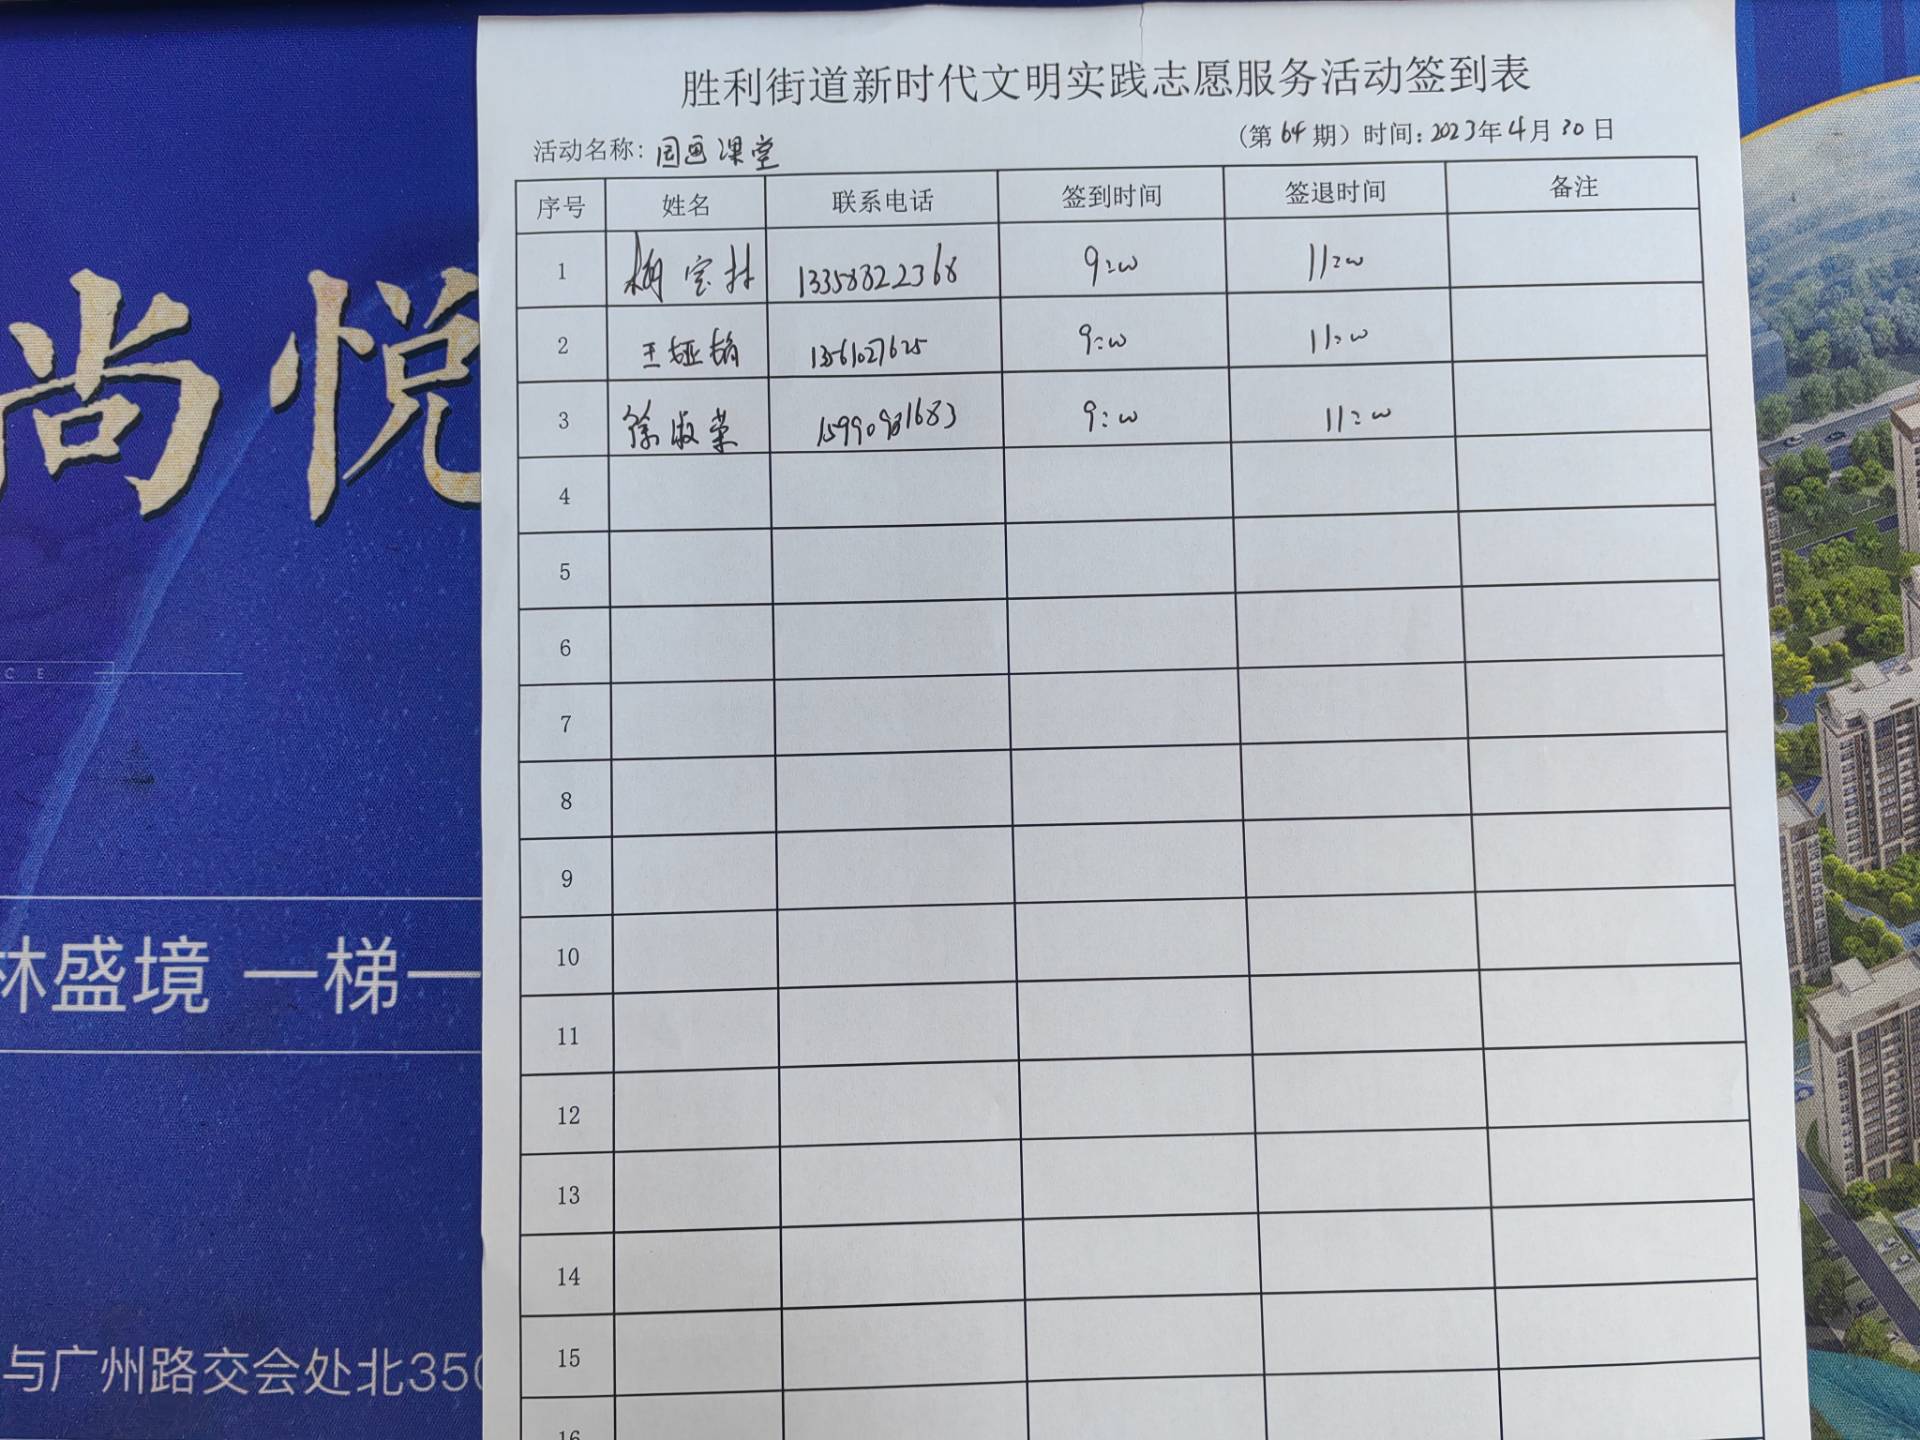 胜利街道新时代文明实践志愿服务活动签到表
活动名称: 国画课堂 (第 64 期) 时间: 2023年 4月 30日
序号 姓名 联系电话 签到时间 签退时间 备注
1 柳宝林 13358822368 9:00 11:00
2 王娅娟 9:00 11:00
3 徐淑荣 9:00 11:00
4
5
6
7
8
9
10
11
12
13
14
15
16
尚悦
CE
林盛境 一梯一
与广州路交会处北350